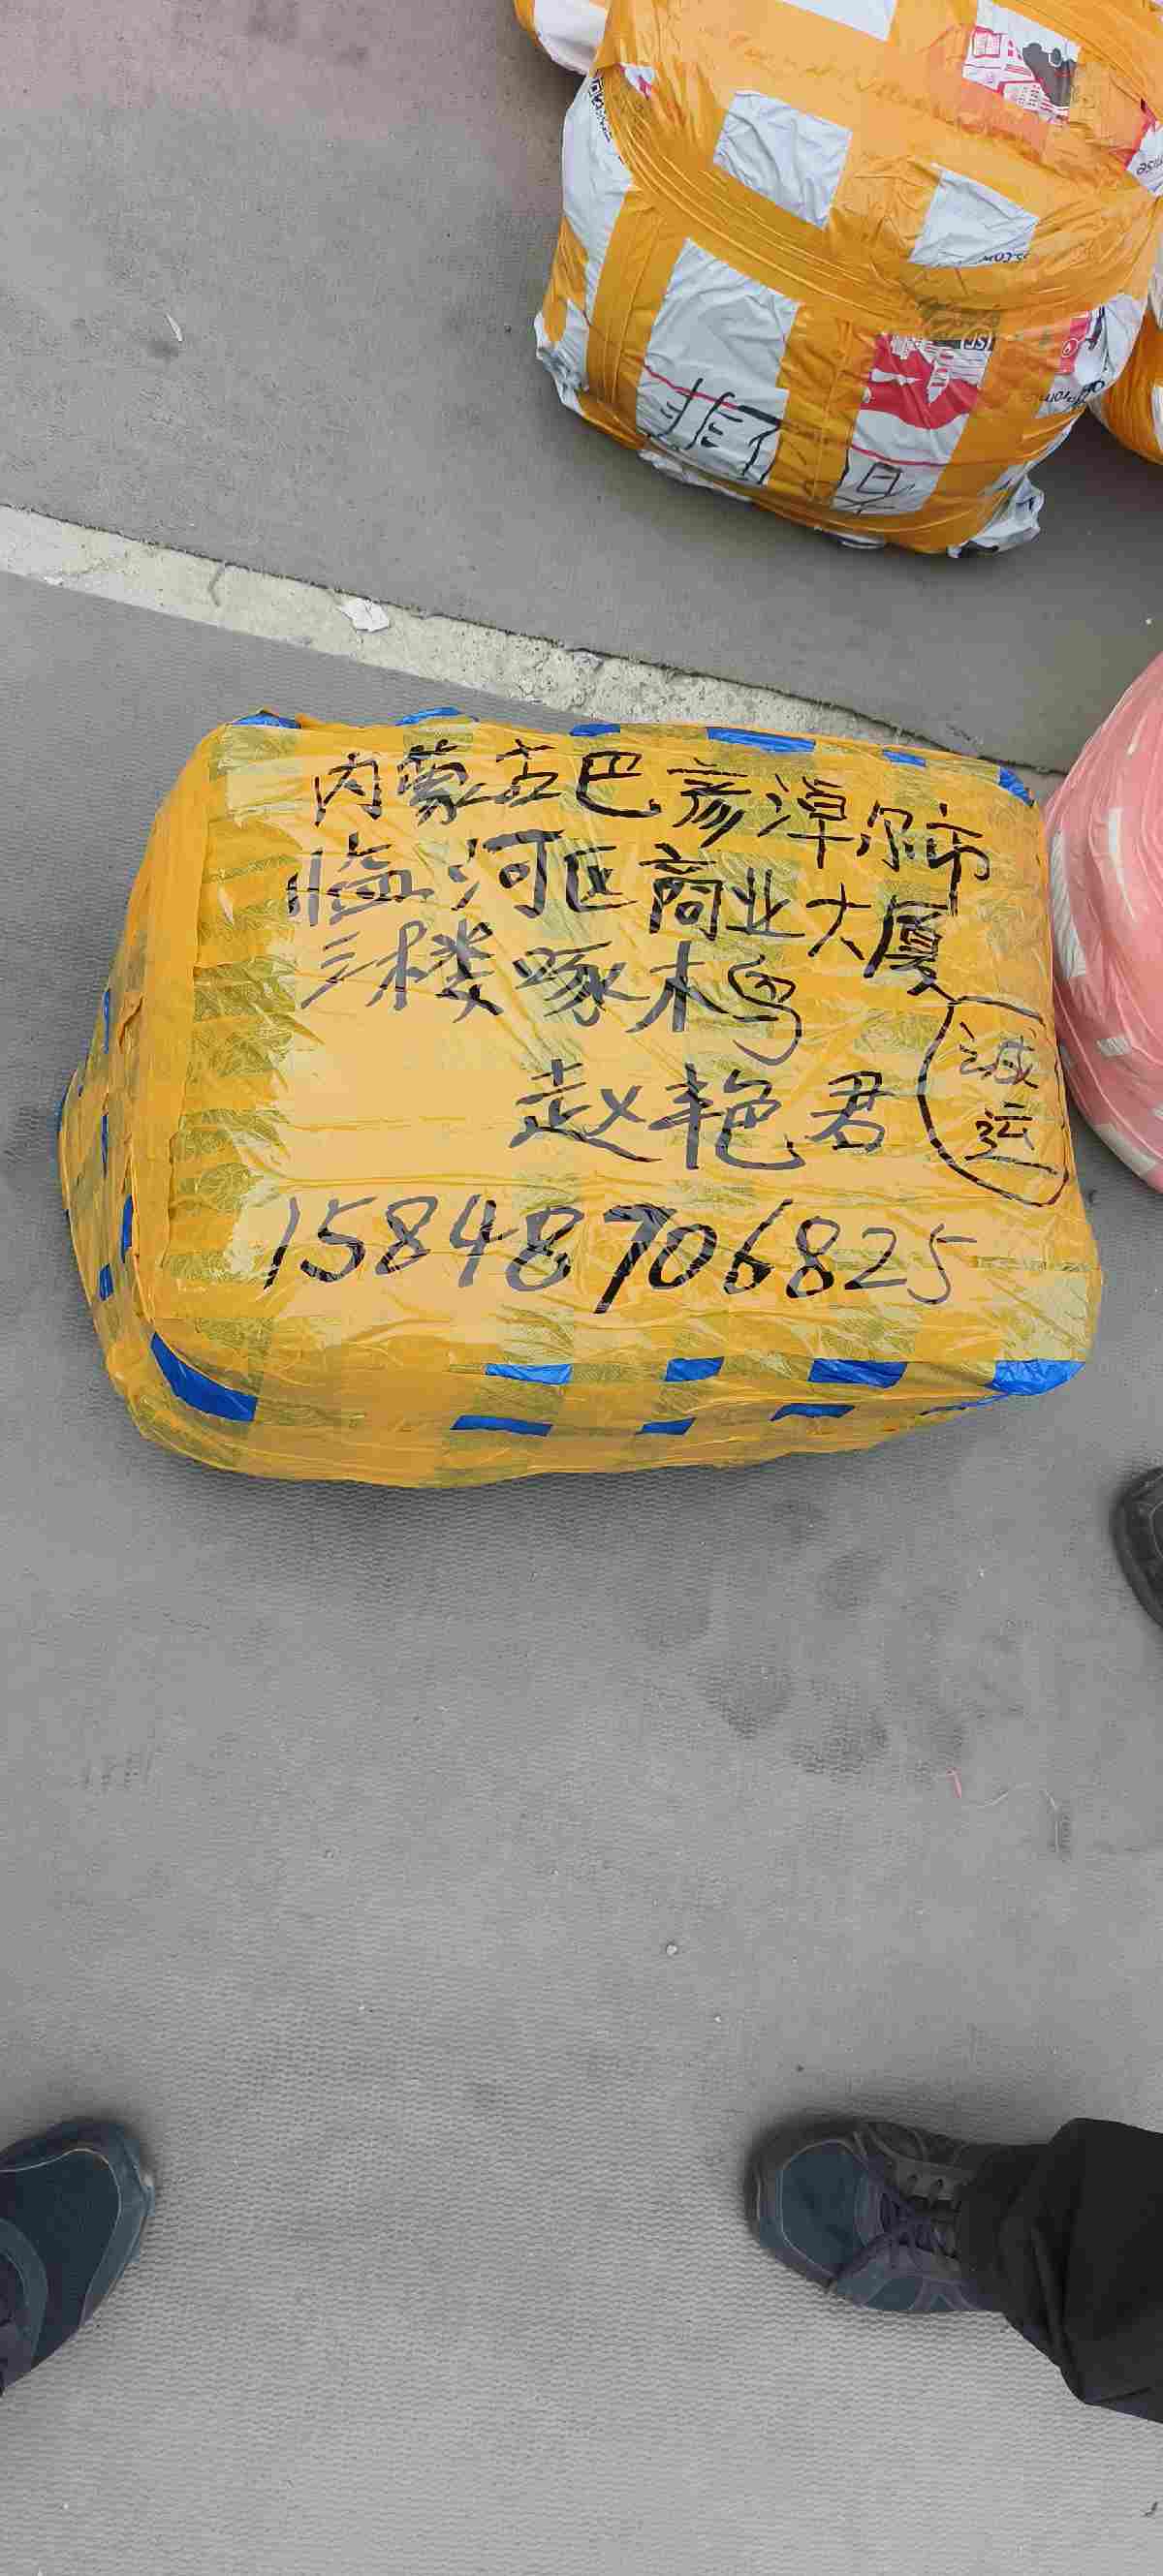 内蒙古巴彦淖尔市
临河区商业大厦
三楼啄木鸟
诚
运
赵艳君
15848706825